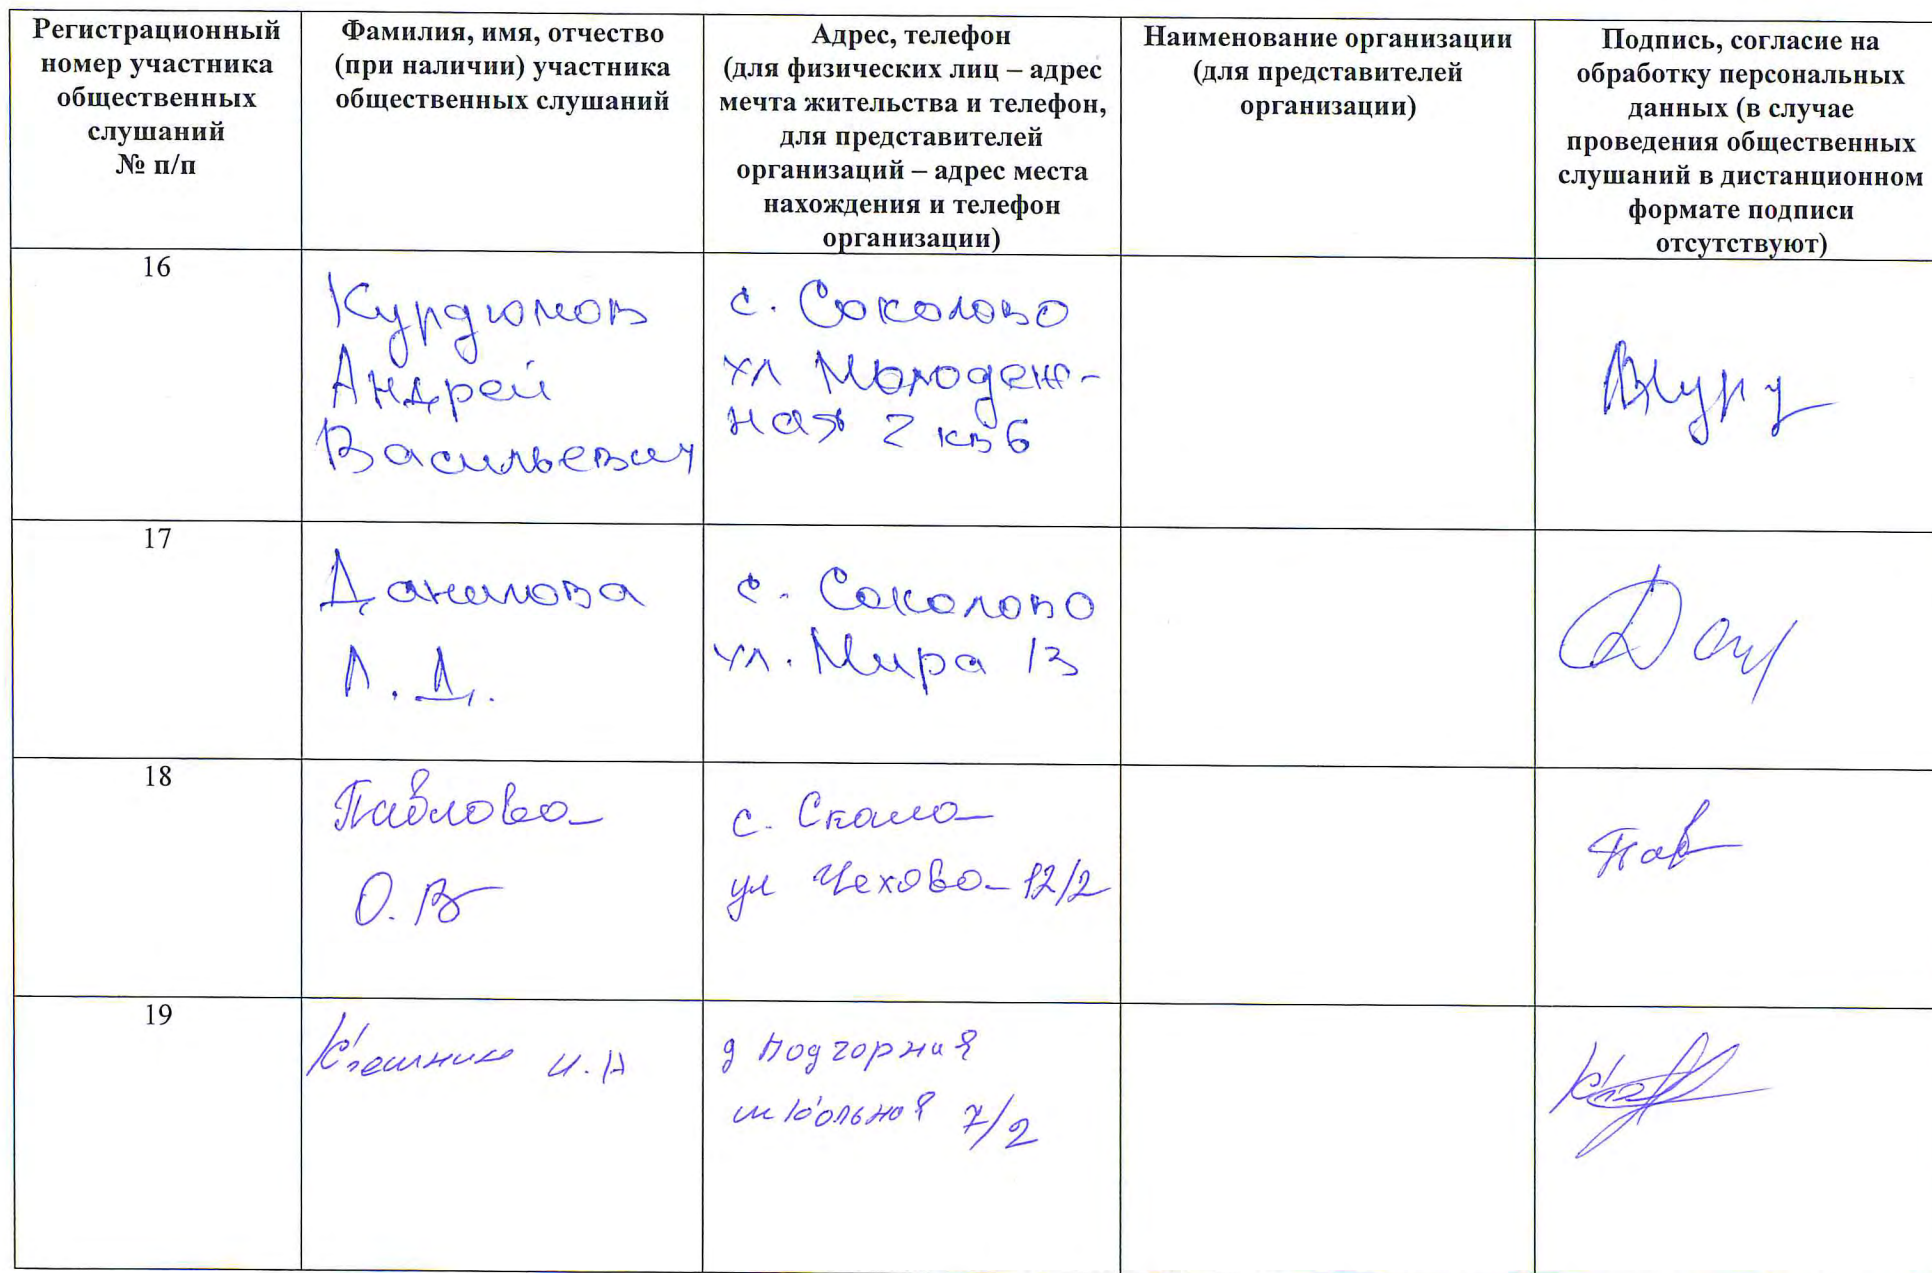 Регистрационный
номер участника
общественных
слушаний
№ п/п
Фамилия, имя, отчество
(при наличии) участника
общественных слушаний
Адрес, телефон
(для физических лиц – адрес
мечта жительства и телефон,
для представителей
организаций – адрес места
нахождения и телефон
организации)
Наименование организации
(для представителей
организации)
Подпись, согласие на
обработку персональных
данных (в случае
проведения общественных
слушаний в дистанционном
формате подписи
отсутствуют)
16
Курдюмов
Андрей
Васильевич
с. Соколово
ул Молодеж-
ная 2 кв 6
17
Данилова
Л. Д.
с. Соколово
ул. Мира 13
18
Павлова
О. В
с. Скала
ул Чехова 12/2
Пав
19
И. А
д Подгорная
школьная 7/2